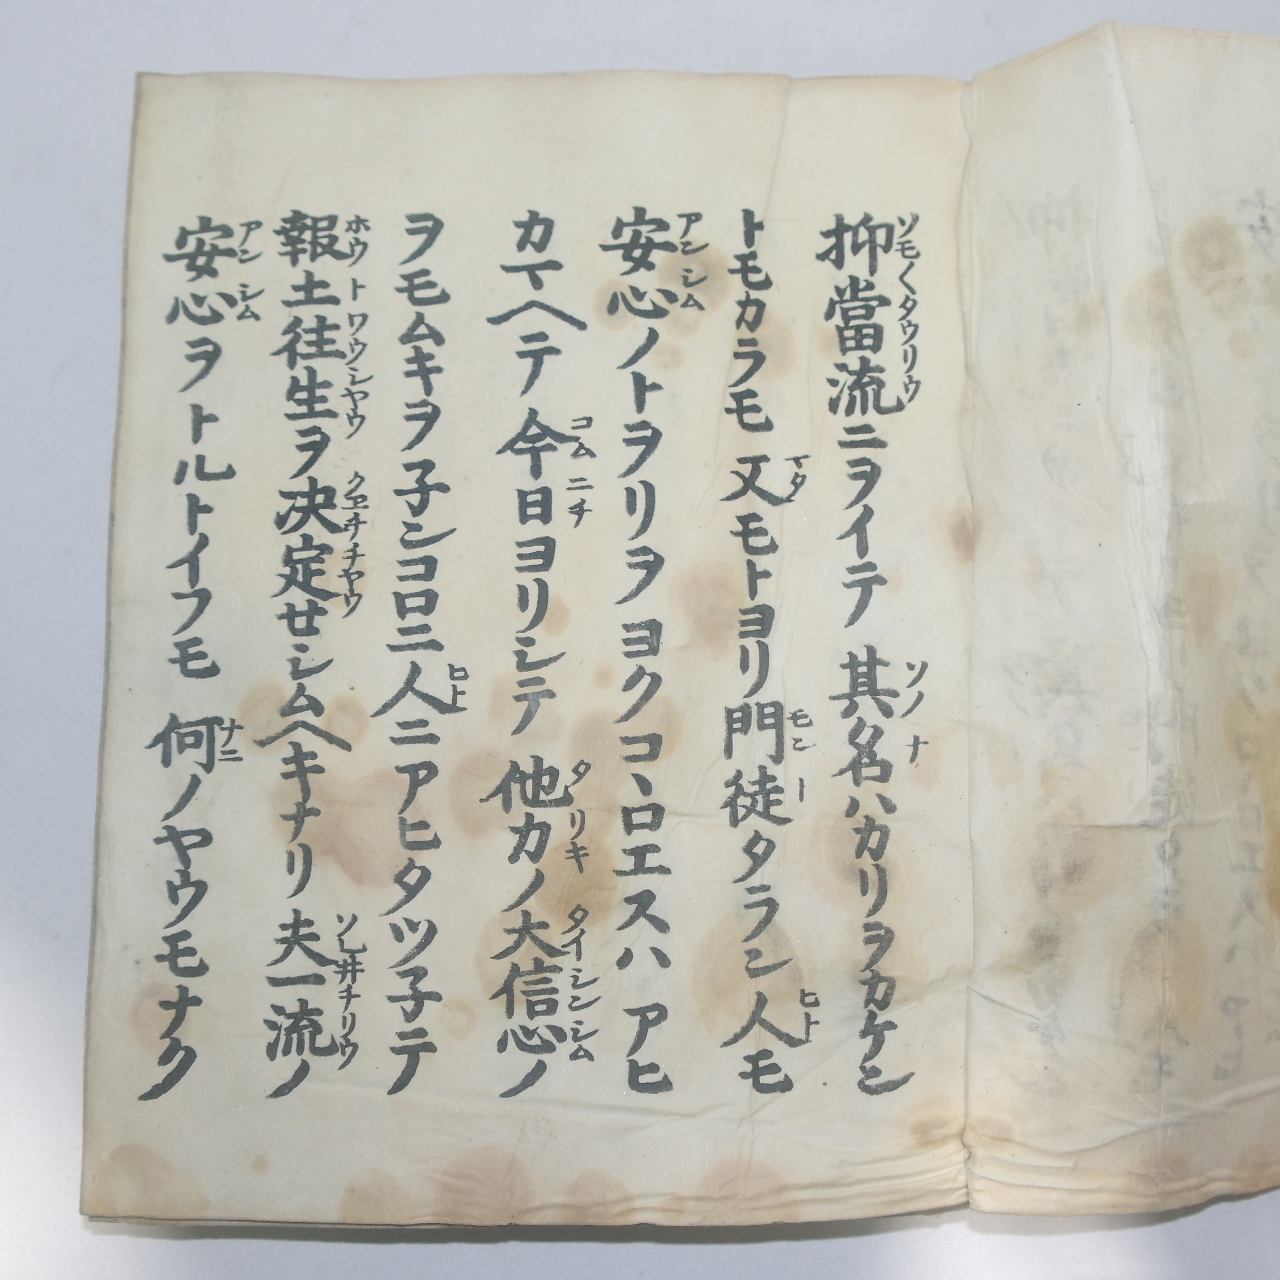 抑當流ニヲイテ其名ハカリヲカケン
トモカラモ又モトヨリ門徒タラン人モ
安心ノトヲリヲヨクコヽロエスハアヒ
カマヘテ今日ヨリシテ他力ノ大信心ノ
ヲモムキヲ子ンコロニ人ニアヒタツ子テ
報土往生ヲ決定せシムヘキナリ夫一流ノ
安心ヲトルトイフモ何ノヤウモナク